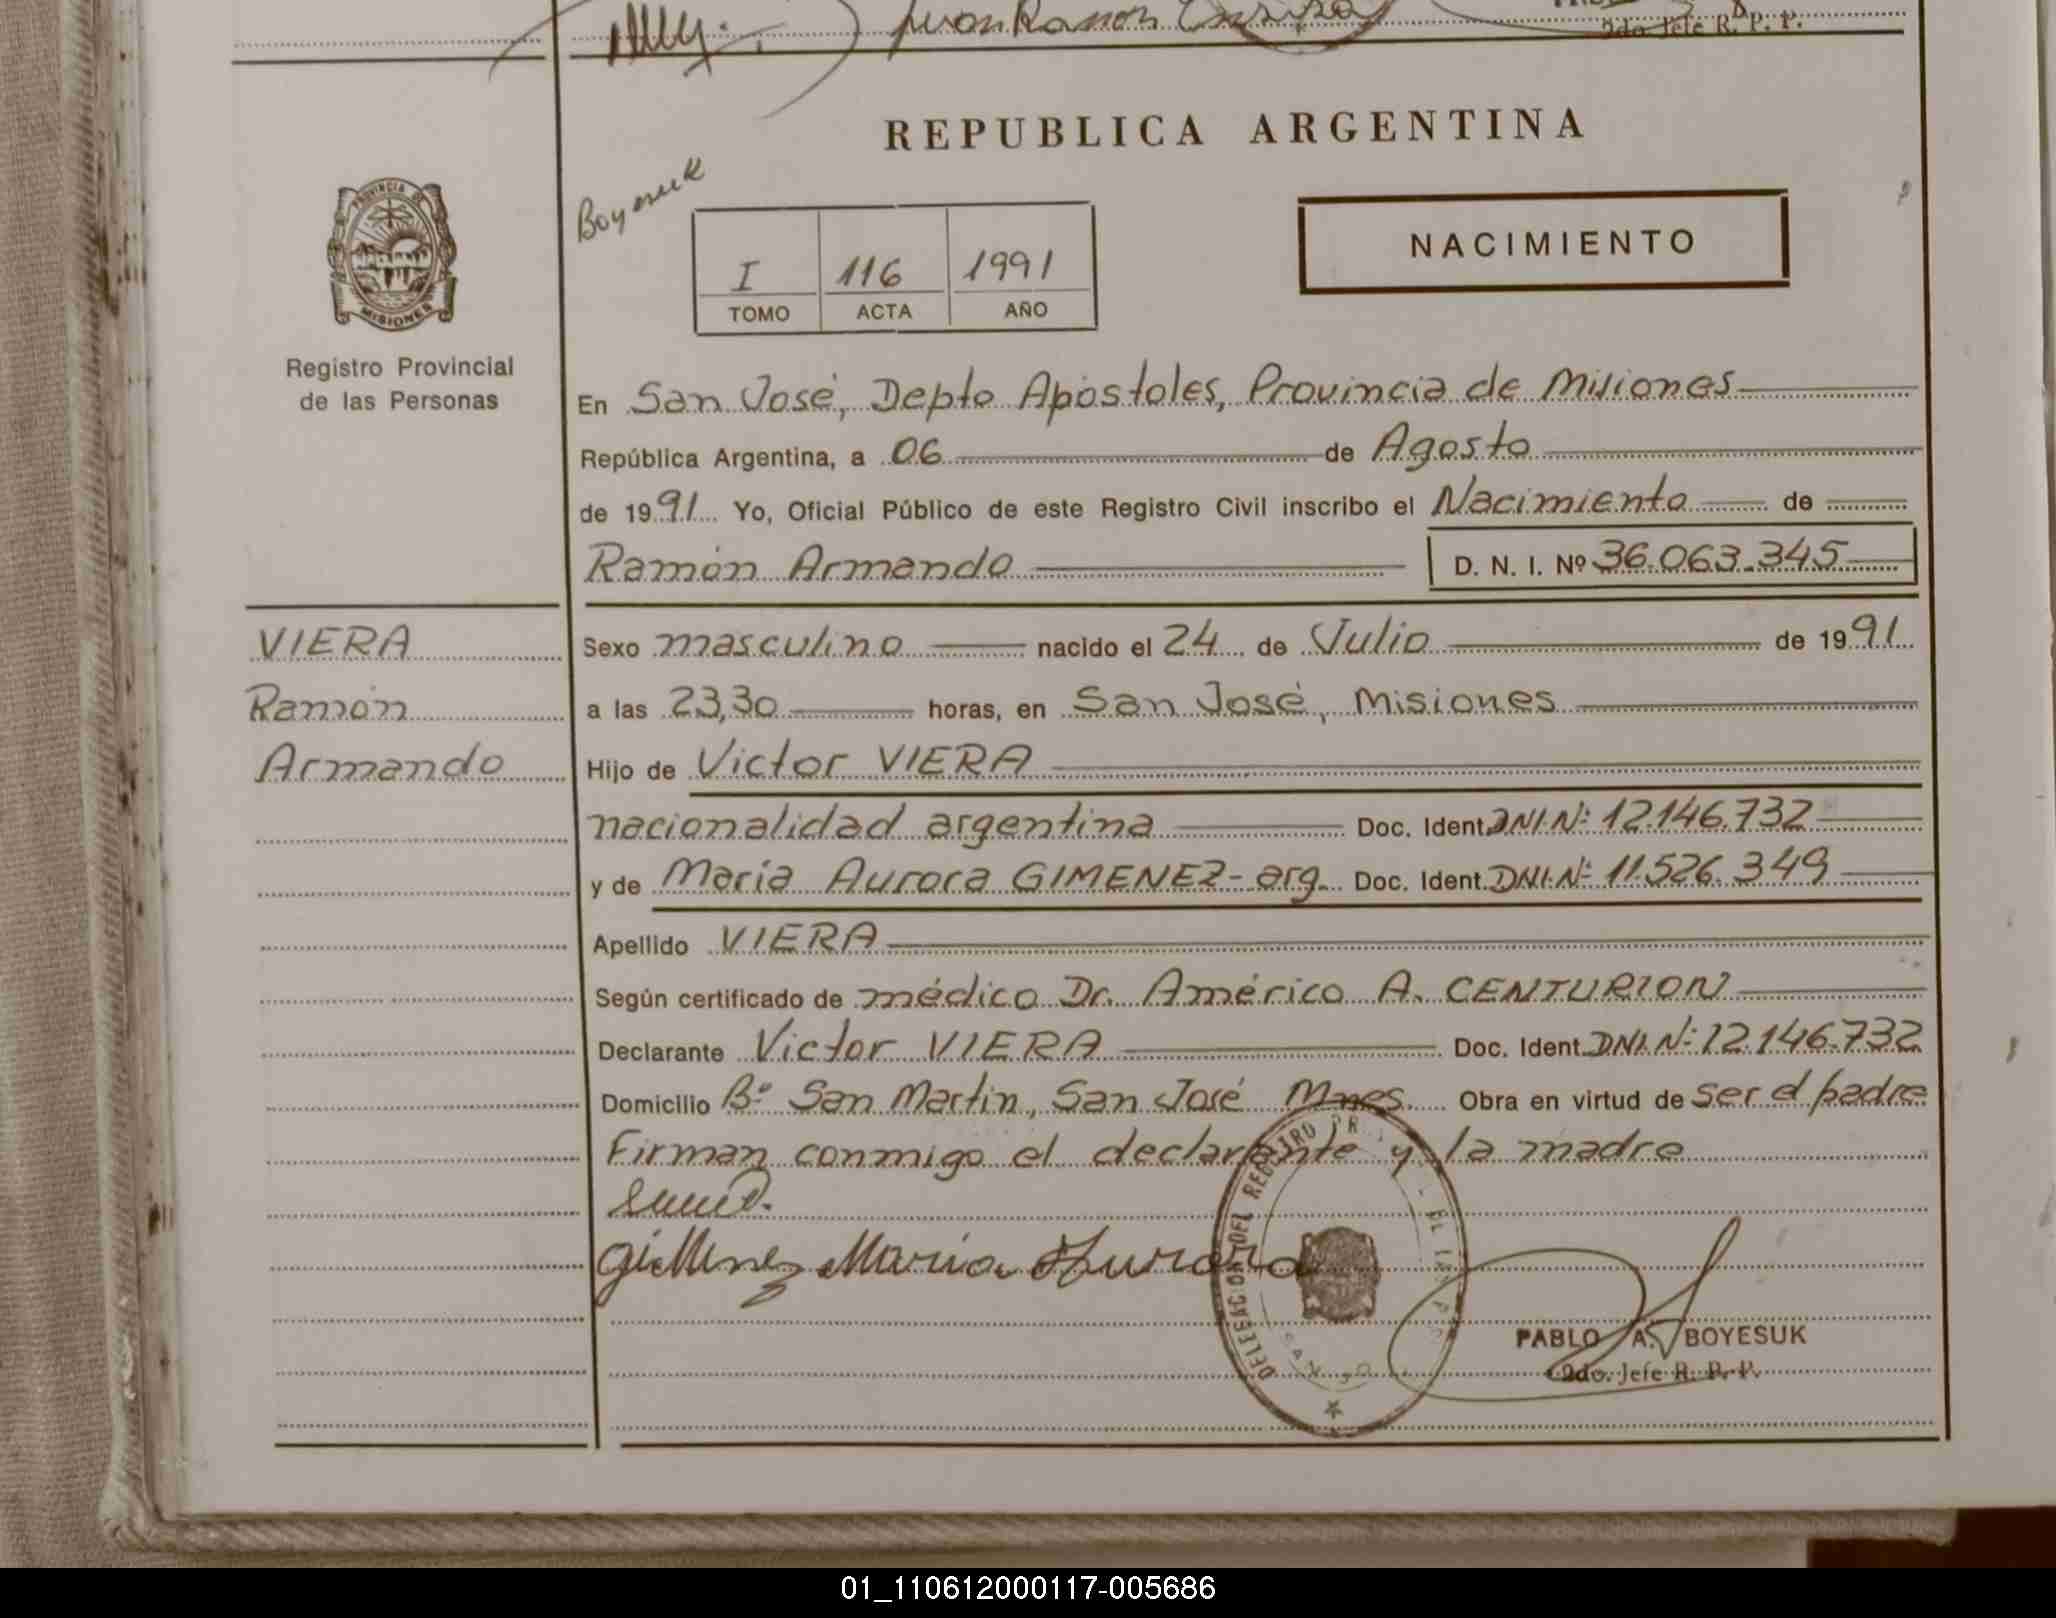 Juan Ramón
2do. Jefe R. P. P.
REPUBLICA ARGENTINA
PROVINCIA DE
MISIONES
Registro Provincial
de las Personas
Boyesuk
I 116 1991
TOMO ACTA AÑO
NACIMIENTO
En San José, Depto Apóstoles, Provincia de Misiones
República Argentina, a 06 de Agosto
de 1991 Yo, Oficial Público de este Registro Civil inscribo el Nacimiento de
Ramón Armando D. N. I. Nº 36.063.345
VIERA
Ramón
Armando
Sexo masculino nacido el 24 de Julio de 1991
a las 23,30 horas, en San José, Misiones
Hijo de Victor VIERA
nacionalidad argentina Doc. Ident. DNI. Nº: 12.146.732
y de Maria Aurora GIMENEZ - arg. Doc. Ident. DNI. Nº: 11.526.349
Apellido VIERA
Según certificado de médico Dr. Américo A. CENTURION
Declarante Victor VIERA Doc. Ident. DNI. Nº: 12.146.732
Domicilio Bº San Martin, San José Mnes. Obra en virtud de ser el padre
Firman conmigo el declarante y la madre
Gimenez Maria Aurora
DELEGACION DEL REGISTRO
PABLO A. BOYESUK
2do. Jefe R. P. P.
01_110612000117-005686